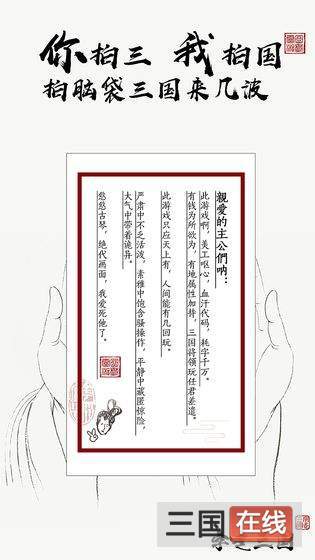 你拍三 我拍国
拍脑袋三国来几波
親愛的主公們呐：
此游戏啊，美工呕心，血汗代码，耗字千万。
有钱为所欲为，有地属性加持，三国将领玩任君差遣。
此游戏只应天上有，人间能有几回玩。
严肃中不乏活泼，素雅中饱含骚操作，平静中藏匿惊险，
大气中带着诡异。
悠悠古琴，绝代画面，我爱死他了。
三国在线